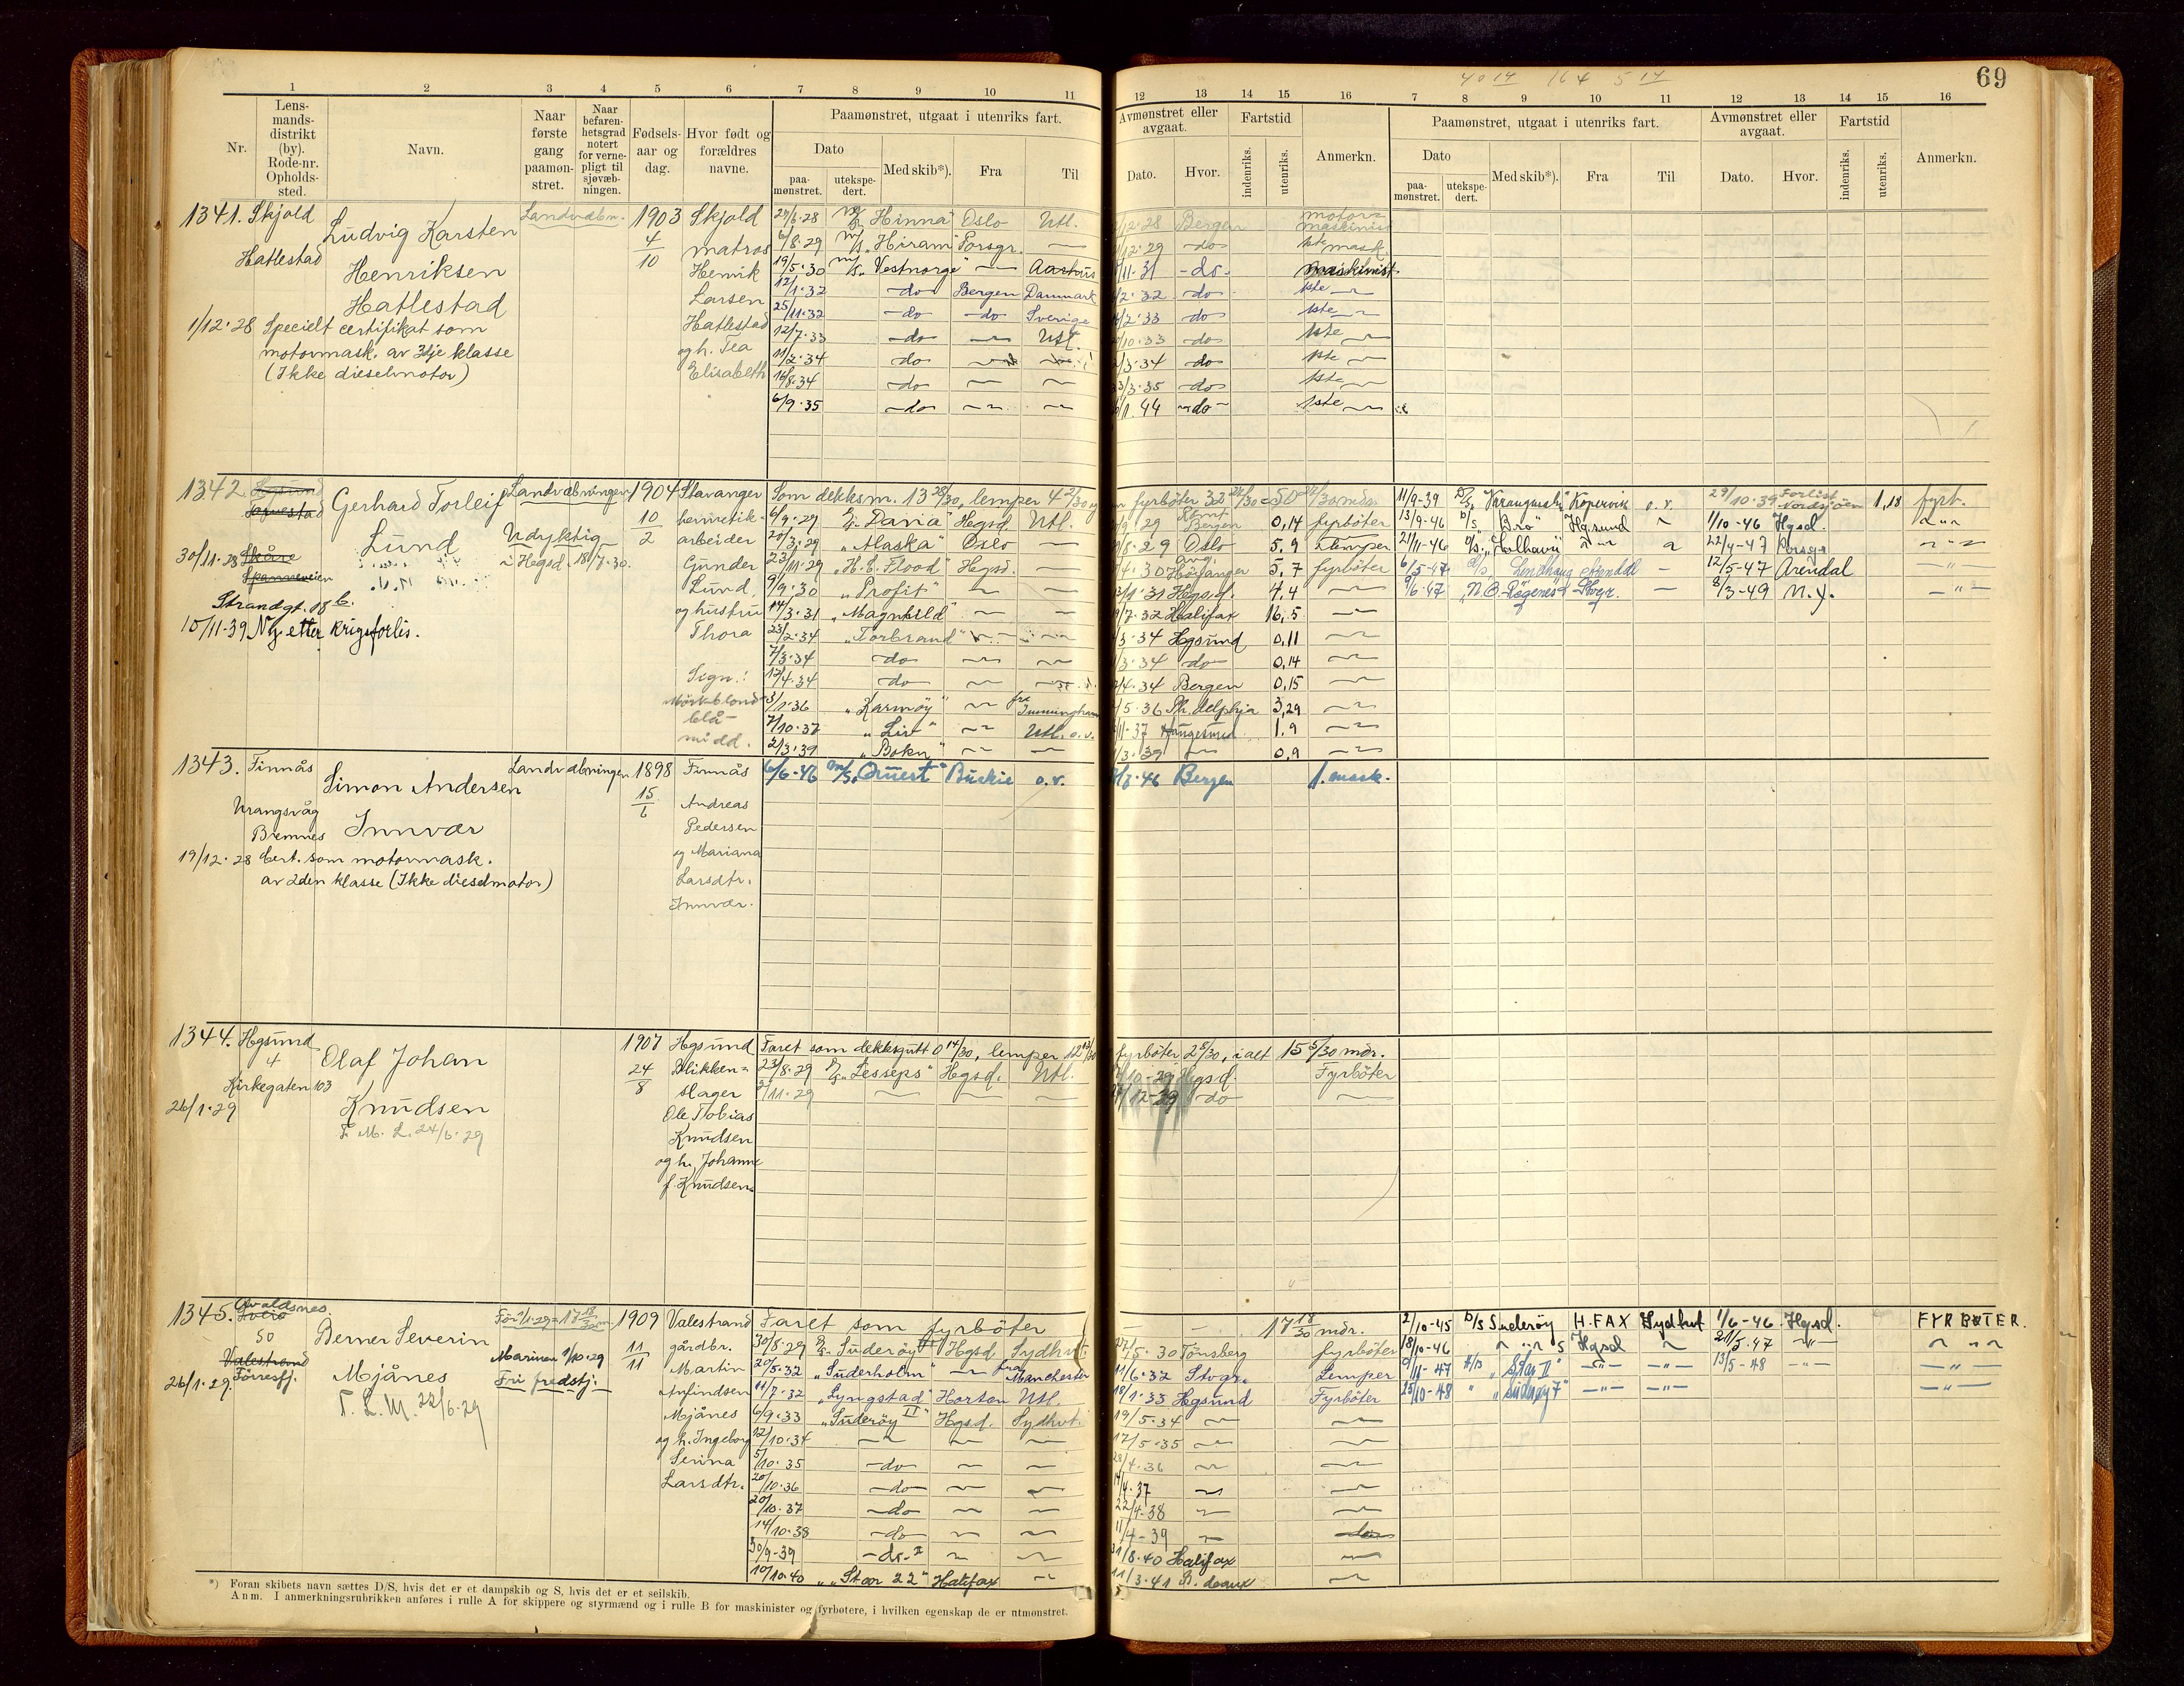 69
1 2 3 4 5 6 7 8 9 10 11 12 13 14 15 16 7 8 9 10 11 12 13 14 15 16
Nr.
Lens-
mands-
distrikt
(by).
Rode-nr.
Opholds-
sted.
Navn.
Naar
første
gang
paamøn-
stret.
Naar
befaren-
hetsgrad
notert
for verne-
pligt til
sjøvæb-
ningen.
Fødsels-
aar og
dag.
Hvor født og
forældres
navne.
Paamønstret, utgaat i utenriks fart.
Dato
paa-
mønstret.
utekspe-
dert.
Med skib*).
Fra
Til
Avmønstret eller
avgaat.
Dato.
Hvor.
Fartstid
indenriks.
utenriks.
Anmerkn.
Paamønstret, utgaat i utenriks fart.
Dato
paa-
mønstret.
utekspe-
dert.
Med skib*).
Fra
Til
Avmønstret eller
avgaat.
Dato.
Hvor.
Fartstid
indenriks.
utenriks.
Anmerkn.
1341. Skjold
Hatlestad
Ludvig Karsten
Henriksen
Hatlestad
Landvæbn.
1903
4/10
Skjold
matros
Henrik
Larsen
Hatlestad
og h. Tea
Elisabeth
1/12-28 Specielt certifikat som
motormask. av 3dje klasse
(Ikke dieselmotor)
"Hinna" Oslo Utl. Bergen motor-
maskinist
6/8-29 "Hiram" Porsgr. — 12-29 do 1ste mask.
19/5-30 "Vestnorge" — Aarhus 11-31 do maskinist
12/1-32 do Bergen Danmark 2-32 do 1ste —
25/11-32 do do Sverige 2-33 do 1ste —
12/7-33 do — Utl. 10-33 do 1ste —
11/2-34 do — 3-34 do 1ste —
16/8-34 do — — 3-35 do 1ste —
6/9-35 do — — 1-44 do 1ste —
1342.
Gerhard Torleif
Lund
Landvæbningen
Udyktig
i Hegsd. 18/7-30.
1904
10/2
Stavanger
hermetik-
arbeider
Gunder
Lund,
og hustru
Thora
Sign.:
Mørkblond
blå-
midd.
30/11-28 Skåre
Spanneveien
Strandgt. 18 b.
10/11-39 Ny etter krigsforlis.
Som dekksm. 13 28/30, lemper 4 21/30 og
fyrbøter
6/9-29 "Dania" Hegsd. Utl. Bergen 0,14 fyrbøter
20/3-29 "Alaska" Oslo — 8-29 Oslo 5,9 Lemper
23/11-29 "H. C. Flood" Hegsd. — 4-30 Høyanger 5,7 fyrbøter
9/9-30 "Profit" — — 1-31 Hegsd. 4,4 —
14/3-31 "Magnhild" — — 7-32 Halifax 16,5 —
23/2-34 "Torbrand" 3-34 Hgsund 0,11 —
7/3-34 do — — 3-34 do 0,14 —
12/4-34 do — 4-34 Bergen 0,15 —
3/1-36 "Karmøy" — fra Immingham 5-36 Ph.delphia 3,29 —
7/10-37 "Liv" — Utl. o.v. 11-37 Haugesund 1,9 —
2/3-39 "Bokn" — — 3-39 — 0,9 —
11/9-39 D/S Kopervik o.v. 29/10-39 Forlist Nordsjøen 1,18 fyrb.
13/9-46 D/S "Bro" Hgsund 1/10-46 Hgsd.
21/11-46 22/4-47 Porsgr
6/5-47 Arendal — 12/5-47 Arendal
9/6-47 8/3-49 N.Y.
1343. Finnås
Urangsvåg
Bremnes
Simon Andersen
Innvær
Landvæbningen
1898
15/6
Finnås
Andreas
Pedersen
og Mariana
Larsdtr.
Innvær.
19/12-28 Cert. som motormask.
av 2den klasse (Ikke dieselmotor)
6/6-46 M/S Buckie o.v. Bergen 1. mask.
1344. Hgsund
4
Kirkegaten 103
Olaf Johan
Knudsen
F. M. L. 24/6-29
26/1-29
1907
24/8
Hgsund
Blikken-
slager
Ole Tobias
Knudsen
og h. Johanne
f. Knudsen.
Faret som dekksgutt 0 14/30, lemper
fyrbøter 2 5/30, ialt 15 5/30 mdr.
23/8-29 "Lesseps" Hgsd. Utl. 10-29 Hgsd. Fyrbøter
11-29 — — — 12-29 do —
1345. Avaldsnes
50
Valestrand
Førresfj.
26/1-29.
Berner Severin
Mjånes
F. L. M. 22/6-29
Før 1/1-29 = 17 18/30 m.
Marinen 1/10-29
Fri fredstj.
1909
11/11
Valestrand
gårdbr.
Martin
Arfindsen
Mjånes
og h. Ingeborg
Senna
Larsdtr.
Faret som fyrbøter 17 18/30 mdr.
30/8-29 "Suderøy" Hgsd. Sydhvt. 27/5-30 Tønsberg fyrbøter
20/5-32 "Suderholm" — fra Manchester 11/6-32 Stvgr. Lemper
11/7-32 "Lyngstad" Horten Utl. 18/1-33 Hgsund Fyrbøter
6/9-33 "Suderøy II" Hgsd. Sydhvt. 19/5-34 — —
12/10-34 — — — 17/5-35 — —
5/10-35 do — — 4-36 — —
20/10-36 do — — 4-37 — —
20/10-37 do — — 22/4-38 — —
14/10-38 do — — 11/4-39 — do
30/9-39 do II — — 31/8-40 Halifax —
10/10-40 "Star 22" Halifax — 11/3-41 —
2/10-45 D/S Suderøy H.FAX Sydhvt 1/6-46 Hgsd. FYRBØTER.
18/10-46 Hgsd 21/5-47
11-47 "Star II" 13/5-48
25/10-48 "Suderøy 7"
*) Foran skibets navn sættes D/S, hvis det er et dampskib og S, hvis det er et seilskib.
Anm. I anmerkningsrubrikken anføres i rulle A for skippere og styrmænd og i rulle B for maskinister og fyrbøtere, i hvilken egenskap de er utmønstret.